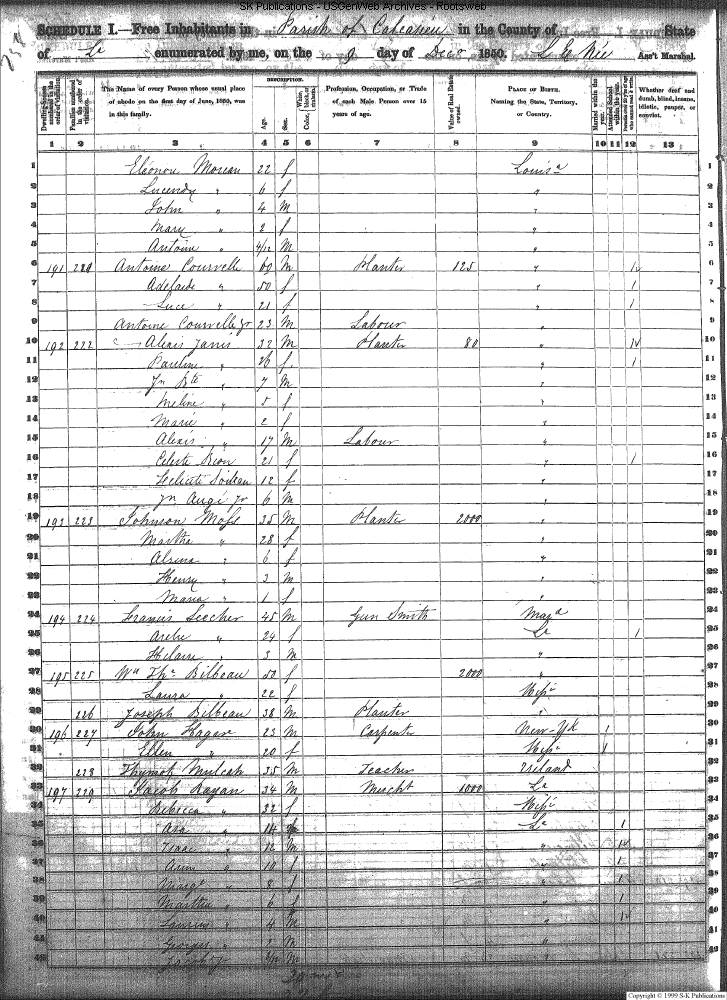 SK Publications - USGenWeb Archives - Rootsweb
SCHEDULE I.—Free Inhabitants in Parish of Calcasieu in the County of State
of La enumerated by me, on the 9 day of Decr 1850. Ass't Marshal.
Dwelling-houses numbered in the order of visitation.
Families numbered in the order of visitation.
The Name of every Person whose usual place of abode on the first day of June, 1850, was in this family.
DESCRIPTION.
Age.
Sex.
White, Color, black, or mulatto.
Profession, Occupation, or Trade of each Male Person over 15 years of age.
Value of Real Estate owned.
PLACE OF BIRTH. Naming the State, Territory, or Country.
Married within the year.
Attended School within the year.
Persons over 20 y'rs of age who cannot read & write.
Whether deaf and dumb, blind, insane, idiotic, pauper, or convict.
1 2 3 4 5 6 7 8 9 10 11 12 13
1 Eleonore Moreau 22 f Louisa 1
2 " 6 f " 2
3 John " 4 M " 3
4 Mary " 2 f " 4
5 Antoine " 4/12 M " 5
6 191 Antoine Courvelle 60 M Planter 125 " 6
7 Adelaide " 50 f " 1 7
8 Luce " 21 f " 1 8
9 Antoine Courvelle Jr 23 M Labour " 9
10 192 222 Alexis 32 M Planter 80 " 10
11 Pauline " 26 f " 1 11
12 Jn Bte " 7 M " 12
13 Meline " 5 f " 13
14 Marie " 2 f " 14
15 Alexis " 17 M Labour " 15
16 Celeste 21 f " 1 16
17 12 f " 17
18 Jn Jr 6 M " 18
19 193 223 Johnson Moss 35 M Planter 2000 " 19
20 Martha " 28 f " 20
21 " 6 f " 21
22 Henry " 3 M " 22
23 Maria " 1 f " 23
24 194 224 Francis 45 M Gun Smith 24
25 " 24 f La 1 25
26 Helaire " 3 M " 26
27 195 225 Wn Ths Bilbeau 50 f 2000 " 27
28 Laura " 22 f Missi 28
29 226 Joseph Bilbeau 38 M Planter " 29
30 196 227 John Hagar 23 M Carpenter New-Yk 1 30
31 Ellen " 20 f Missi 1 31
32 228 35 M Teacher Ireland 32
33 197 229 Jacob Ragan 34 M Mercht 1000 La 33
34 Rebecca " 32 f Missi 34
35 " 14 La 1 35
36 Isaac " 12 M " 36
37 Ann " 10 f " 1 37
38 " 8 f " 1 38
39 Martha " 6 f " 1 39
40 " 4 M " 40
41 " 2 M " 41
42 Jacob Jr M " 42
Copyright © 1999 S-K Publications